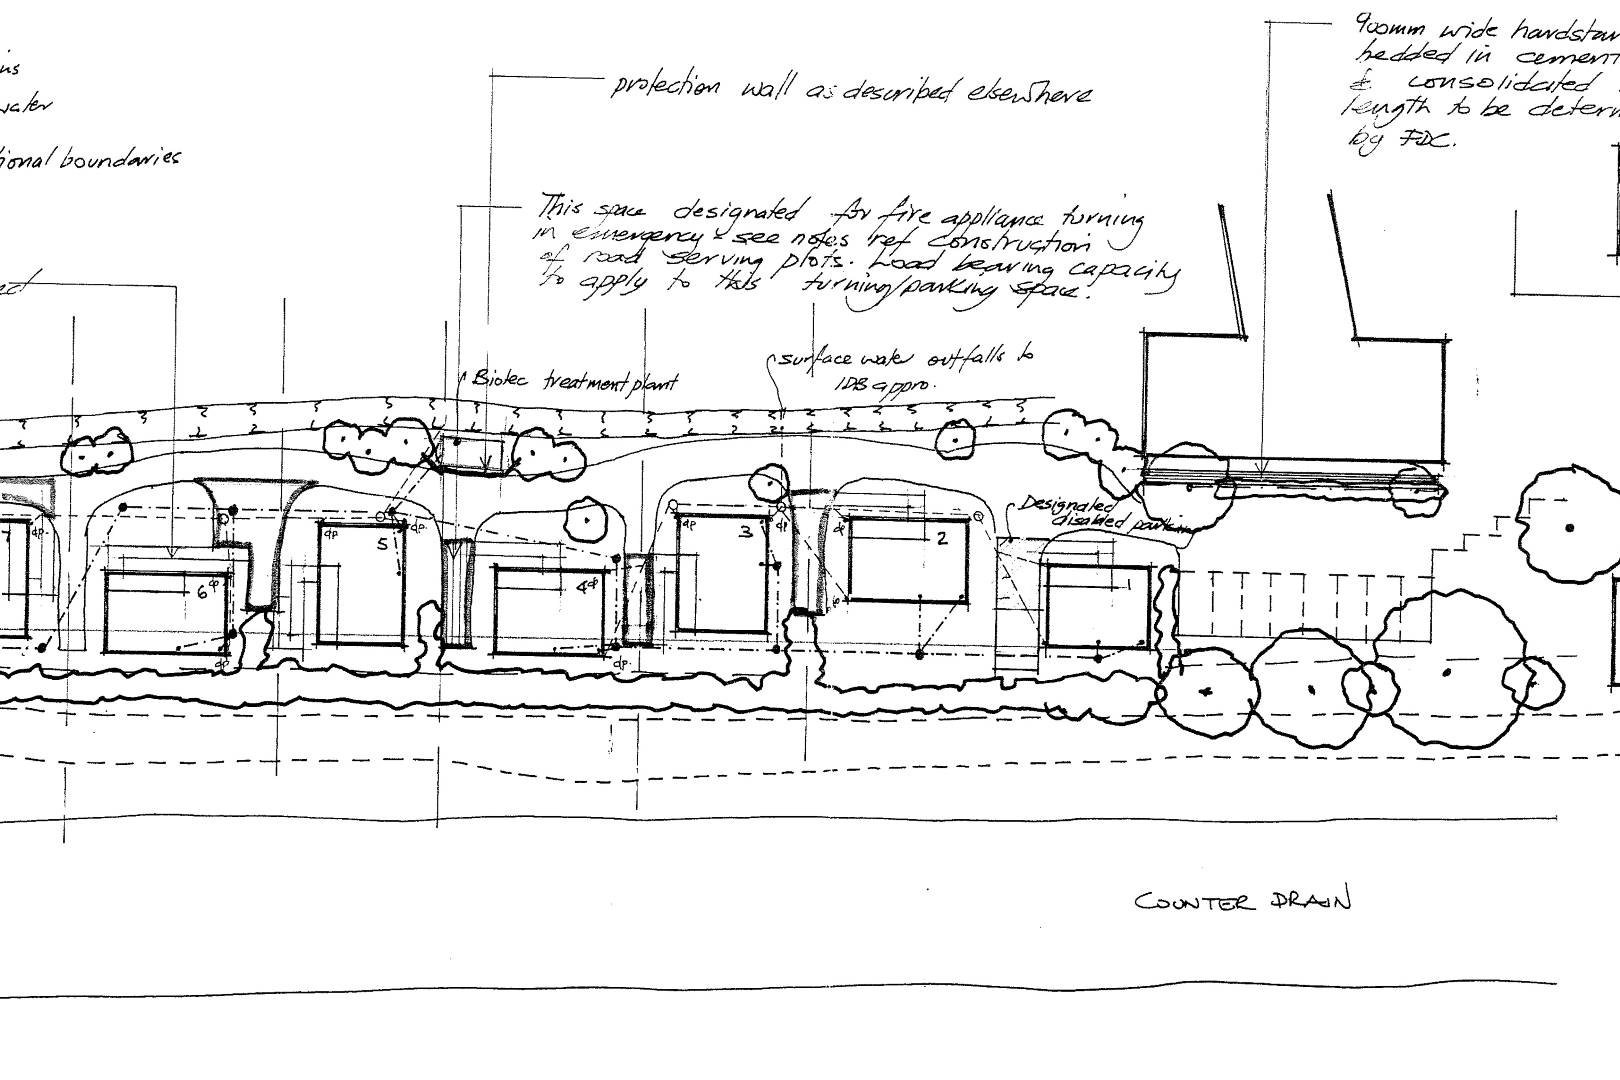 900mm wide
bedded in cement
& consolidated
length to be
by FDC.
protection wall as described elsewhere
water
boundaries
This space designated for fire appliance turning
in emergency - see notes ref construction
of road serving plots. Load bearing capacity
to apply to this turning/parking space.
surface water outfalls to
IDB appro.
Biotec treatment plant
Designated
disabled parking
dp.
dp
dp.
dp
dp
dp
dp
5
3
2
6
dp
4
dp
dp
dp.
COUNTER DRAIN